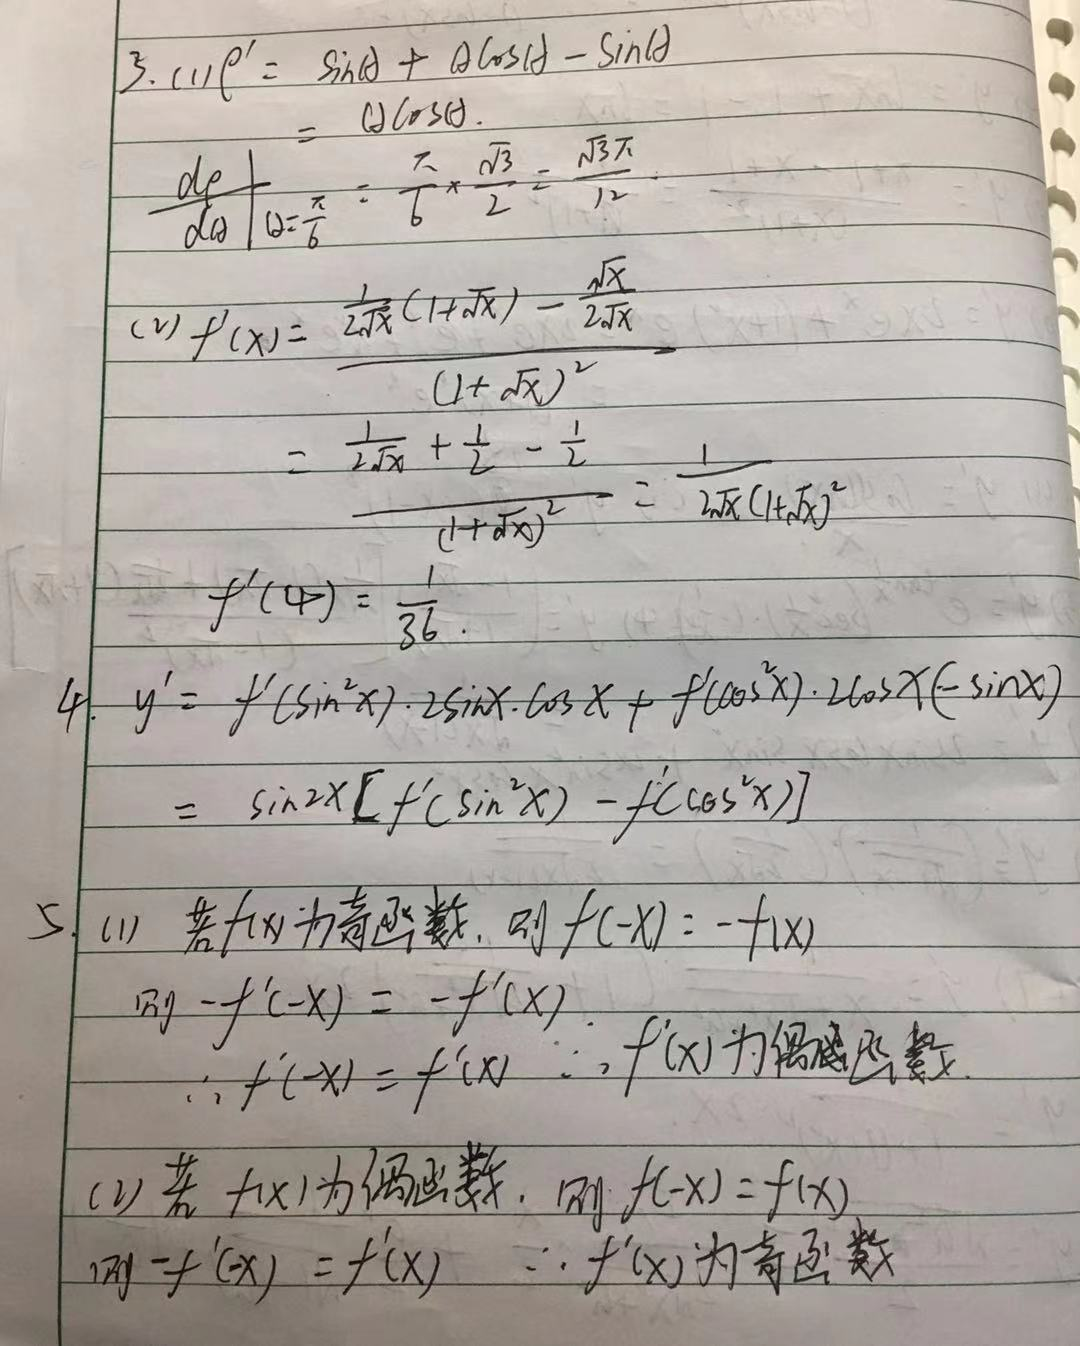 3. (1) ρ' = sinθ + θcosθ - sinθ
= θcosθ.
dρ/dθ |θ=π/6 = π/6 × √3/2 = √3π/12.
(2) f'(x) = [1/(2√x) (1+√x) - √x/(2√x)] / (1+√x)²
= [1/(2√x) + 1/2 - 1/2] / (1+√x)² = 1/(2√x(1+√x)²)
f'(4) = 1/36.
4. y' = f'(sin²x)·2sinx·cosx + f'(cos²x)·2cosx(-sinx)
= sin2x[f'(sin²x) - f'(cos²x)]
5. (1) 若f(x)为奇函数. 则 f(-x) = -f(x)
则 -f'(-x) = -f'(x).
∴ f'(-x) = f'(x) ∴ f'(x)为偶函数.
(2) 若 f(x)为偶函数. 则 f(-x) = f(x)
则 -f'(-x) = f'(x) ∴ f'(x)为奇函数